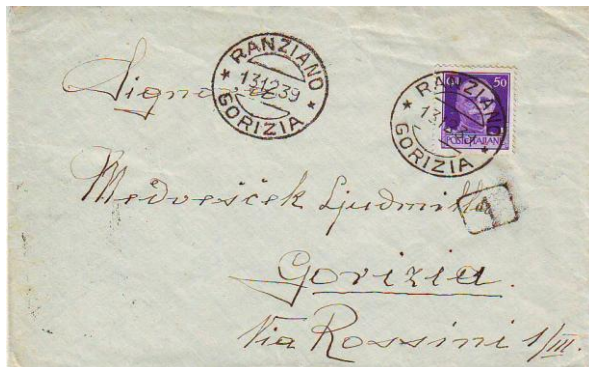 RANZIANO
13.12.39
GORIZIA
RANZIANO
GORIZIA
50
POSTE ITALIANE
Signora
Medvešček Ljudmilla
1
Gorizia.
Via Rossini 1/III.